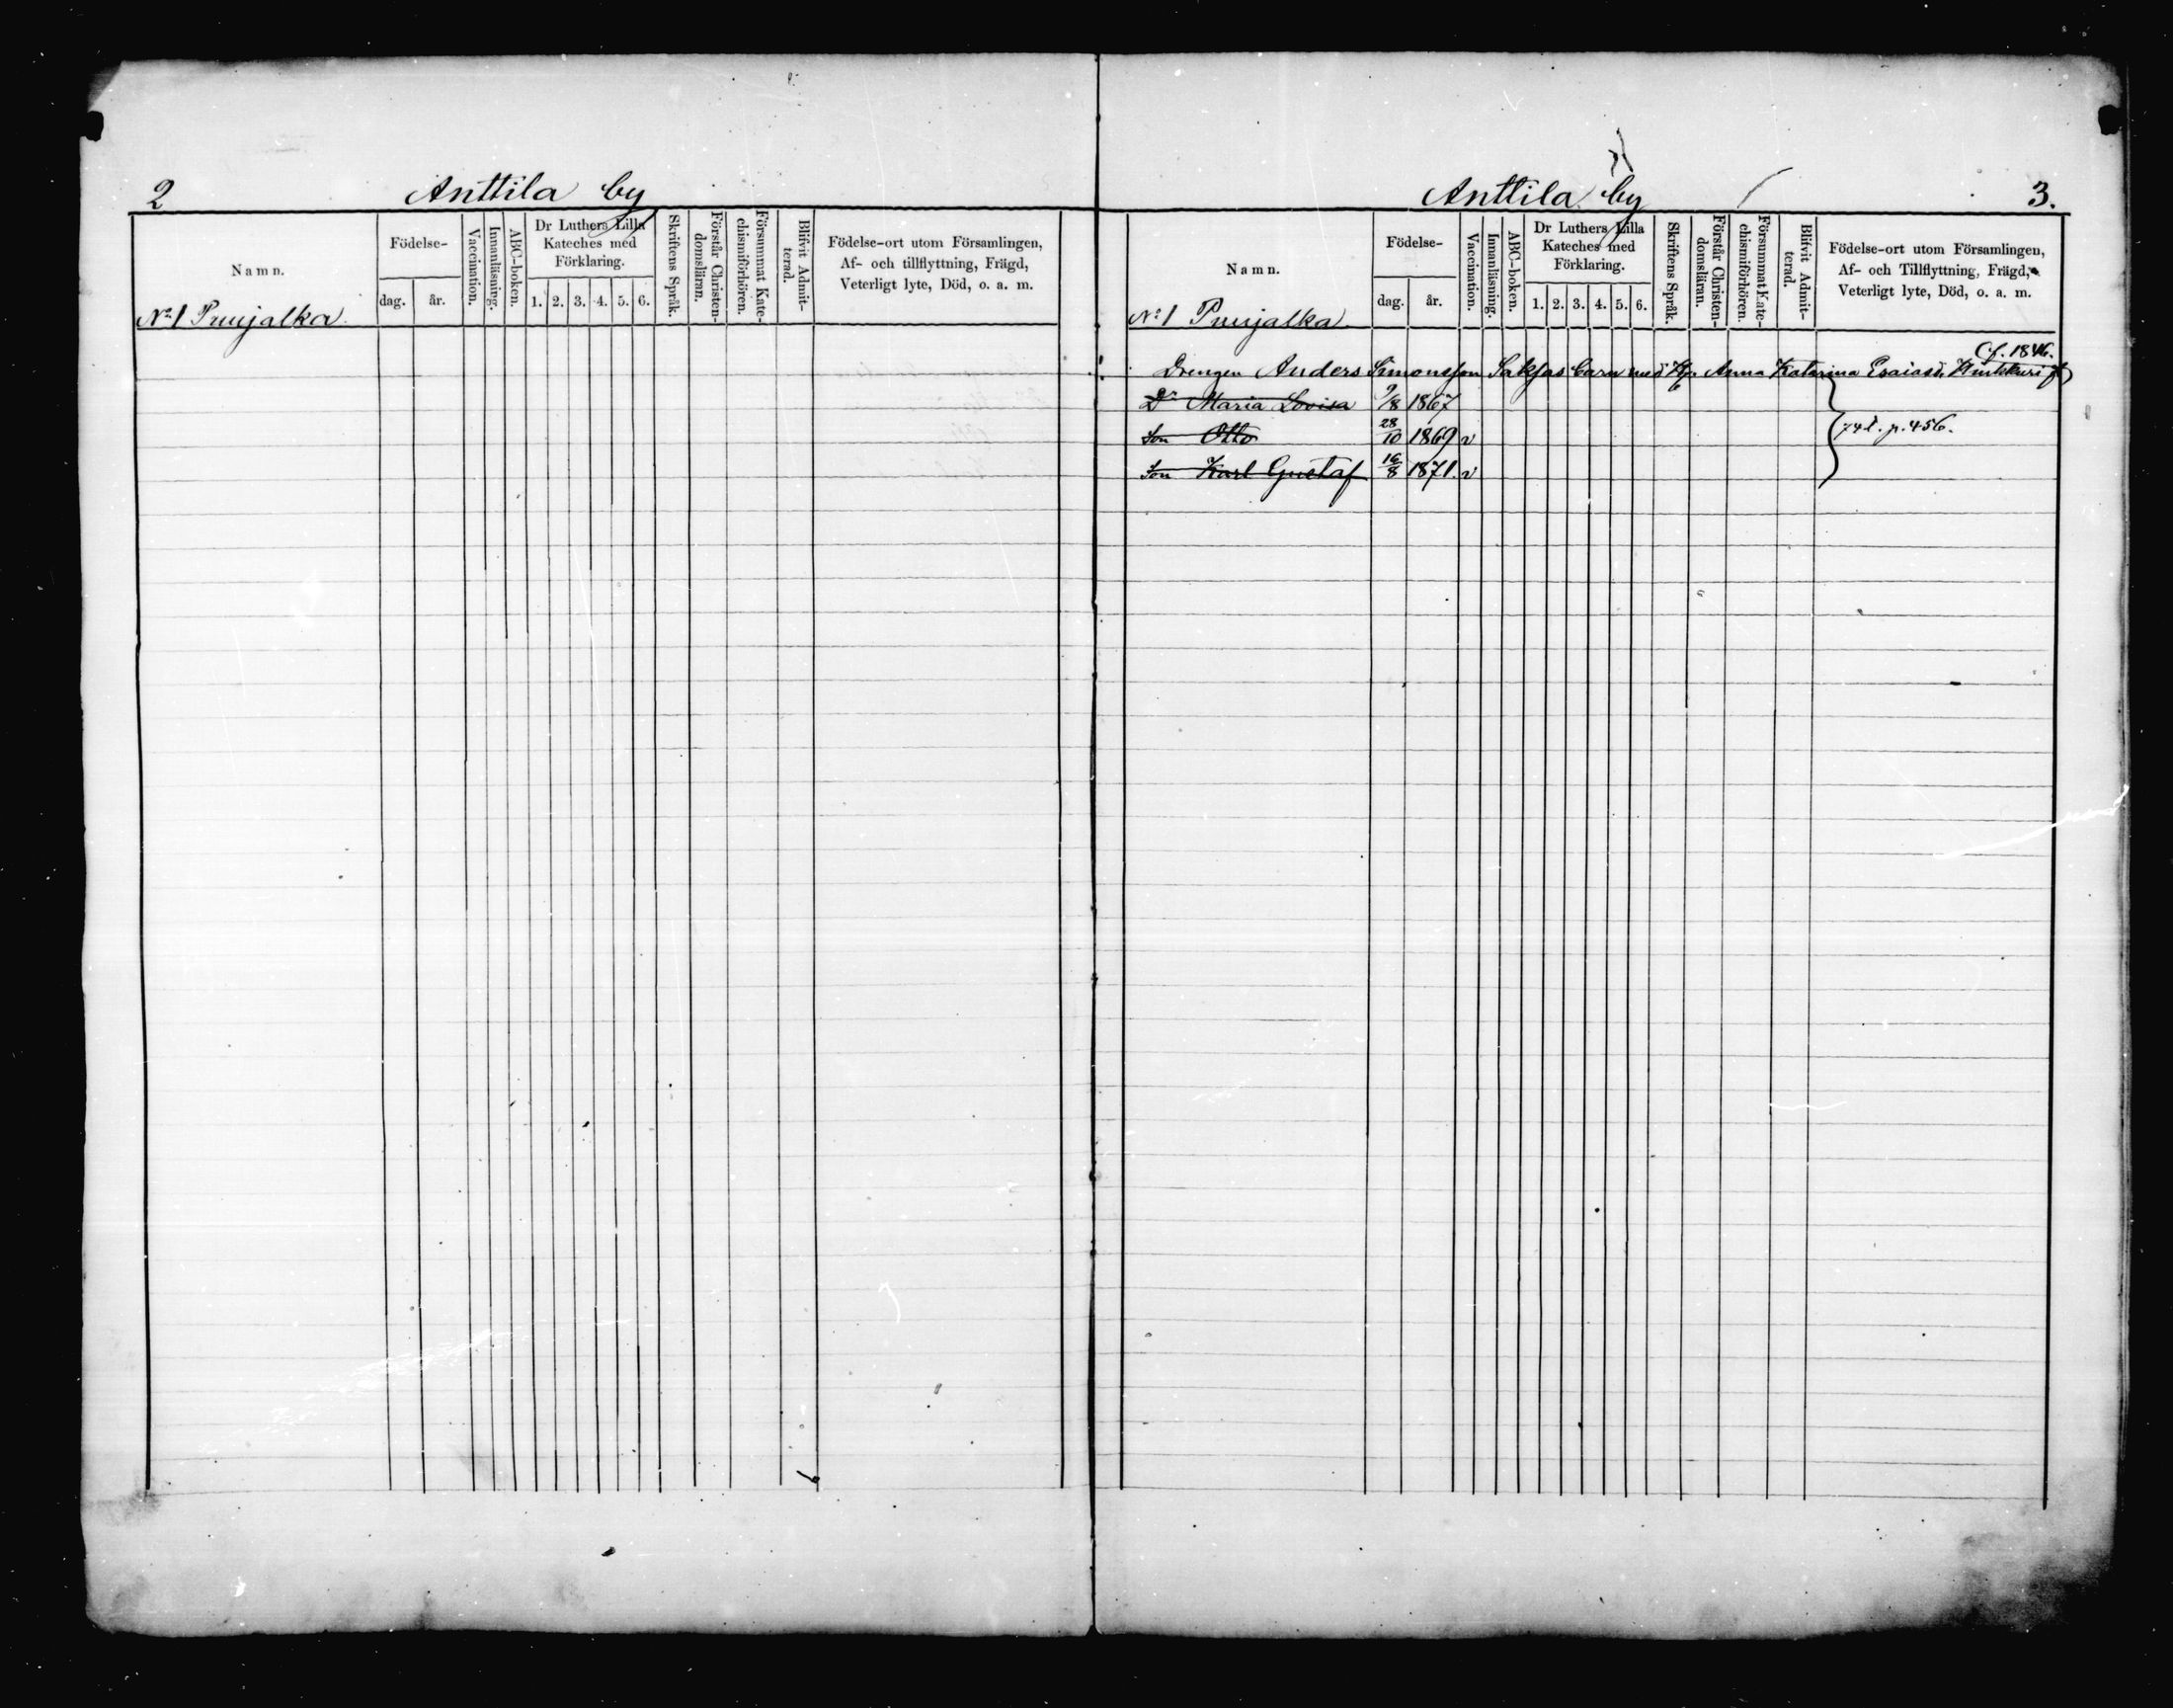 2
Anttila by
Namn.
Födelse-
dag.
år.
Vaccination.
Innanläsning.
ABC-boken.
Dr Luthers Lilla
Kateches med
Förklaring.
1. 2. 3. 4. 5. 6.
Skriftens Språk.
Förstår Christen-
domsläran.
Försummat Kate-
chismiförhören.
Blifvit Admit-
terad.
Födelse-ort utom Församlingen,
Af- och tillflyttning, Frägd,
Veterligt lyte, Död, o. a. m.
No 1 Puujalka.
Anttila by
3.
Namn.
Födelse-
dag.
år.
Vaccination.
Innanläsning.
ABC-boken.
Dr Luthers Lilla
Kateches med
Förklaring.
1. 2. 3. 4. 5. 6.
Skriftens Språk.
Förstår Christen-
domsläran.
Försummat Kate-
chismiförhören.
Blifvit Admit-
terad.
Födelse-ort utom Församlingen,
Af- och Tillflyttning, Frägd,
Veterligt lyte, Död, o. a. m.
No 1 Puujalka.
Drengen Anders Simonsson Saksas barn med Hu Anna Katarina Esaiasd. f. 1846.
Dr Maria Lovisa 9/8 1867
Son Otto 28/10 1869 v
Son Karl Gustaf 16/8 1871. v
p. 456.